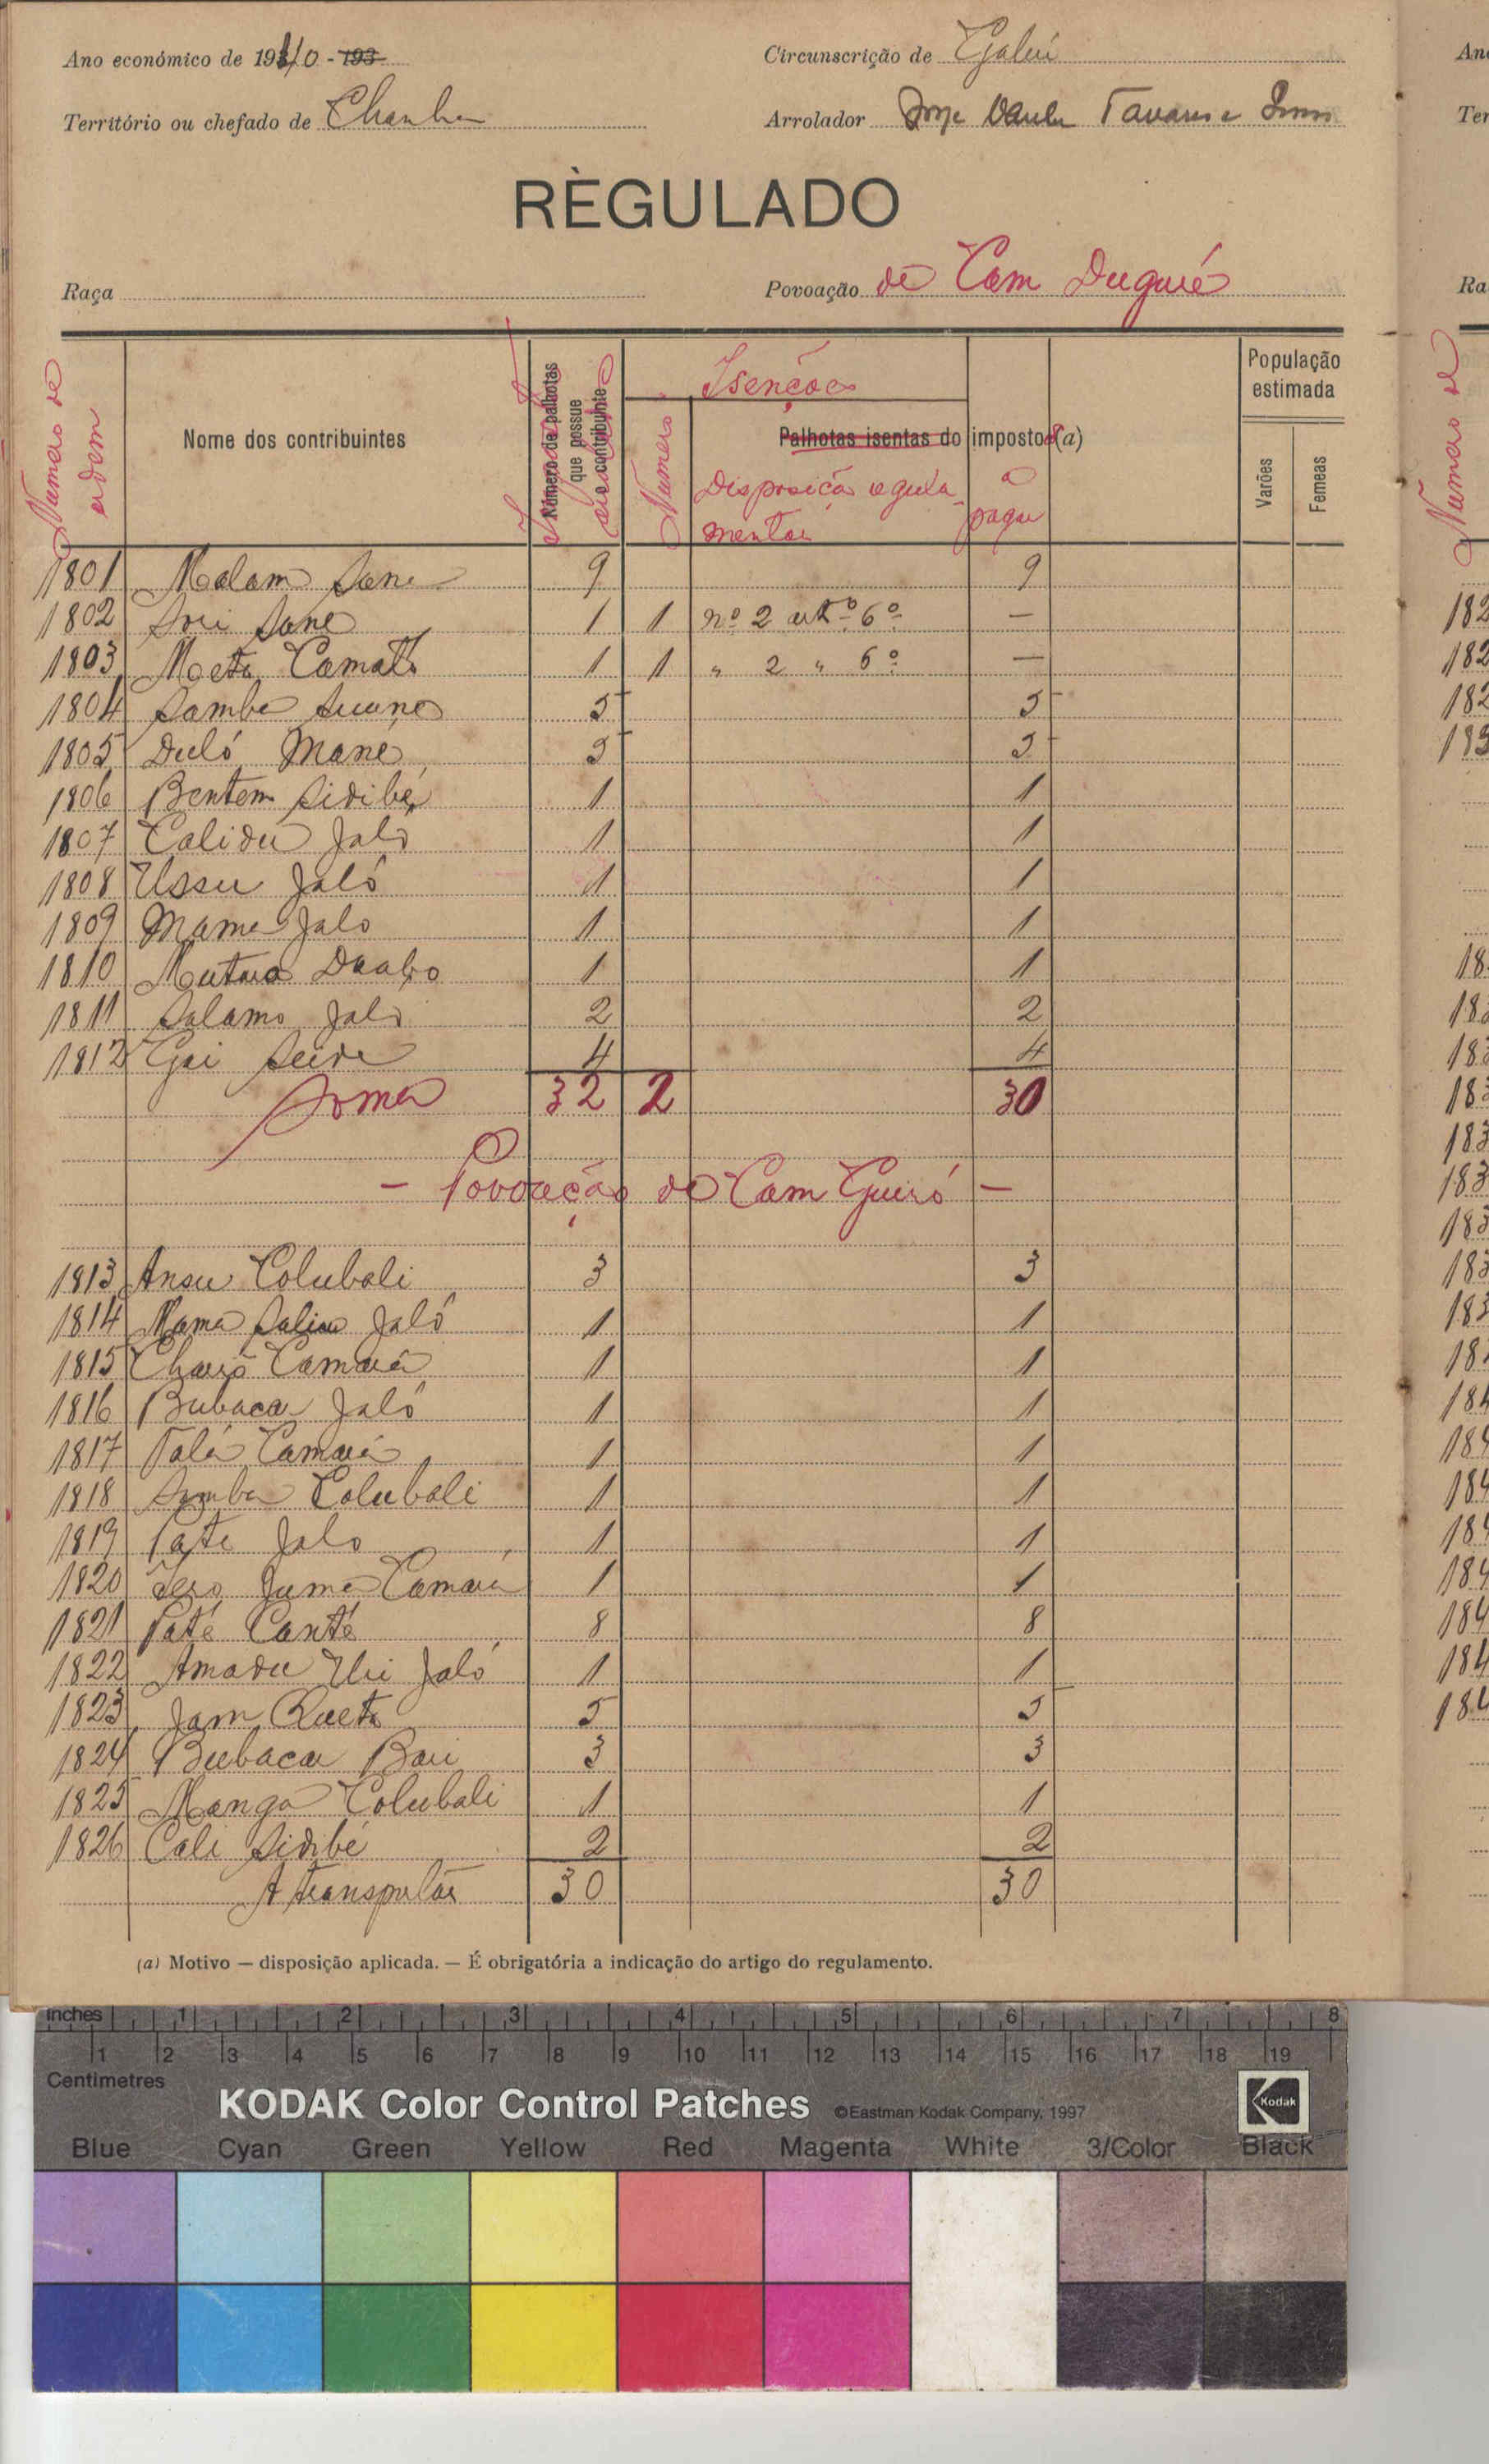 Ano económico de 1940 - 193
Circunscrição de Gabú
Território ou chefado de Chanha
Arrolador Jorge Tavares
RÈGULADO
Raça
Povoação de Cam Duguié
Numero de ordem
Nome dos contribuintes
Número de palhotas que possue o contribuinte
Numero
Isenções
Palhotas isentas do imposto (a)
Disposição regula-
mentar
a
pagar
População estimada
Varões
Femeas
1801 Malam Sane 9 9
1802 Sori Sane 1 1 nº 2 artº 6º —
1803 Meta Camatá 1 1 " 2 " 6º —
1804 Samba Suane 5 5
1805 Duló Mané 5 5
1806 Bentem Sidibé 1 1
1807 Calidu Jaló 1 1
1808 Ussu Jaló 1 1
1809 Mama Jalo 1 1
1810 Mutaro 1 1
1811 Salamo Jaló 2 2
1812 Gai Seide 4 4
Soma 32 2 30
— Povoação de Cam Gueiró —
1813 Ansu Colubali 3 3
1814 Mama Saliu Jaló 1 1
1815 Camará 1 1
1816 Bubacar Jaló 1 1
1817 Talá Camará 1 1
1818 Samba Colubali 1 1
1819 Pate Jalo 1 1
1820 Juma Camará 1 1
1821 Paté Canté 8 8
1822 Amadu Uri Jaló 1 1
1823 Jam Queta 5 5
1824 Bubacar Bari 3 3
1825 Manga Colubali 1 1
1826 Cali Sidibé 2 2
A transportar 30 30
(a) Motivo — disposição aplicada. — É obrigatória a indicação do artigo do regulamento.
Inches 1 2 3 4 5 6 7 8
1 2 3 4 5 6 7 8 9 10 11 12 13 14 15 16 17 18 19
Centimetres
KODAK Color Control Patches ©Eastman Kodak Company, 1997 Kodak
Blue Cyan Green Yellow Red Magenta White 3/Color Black